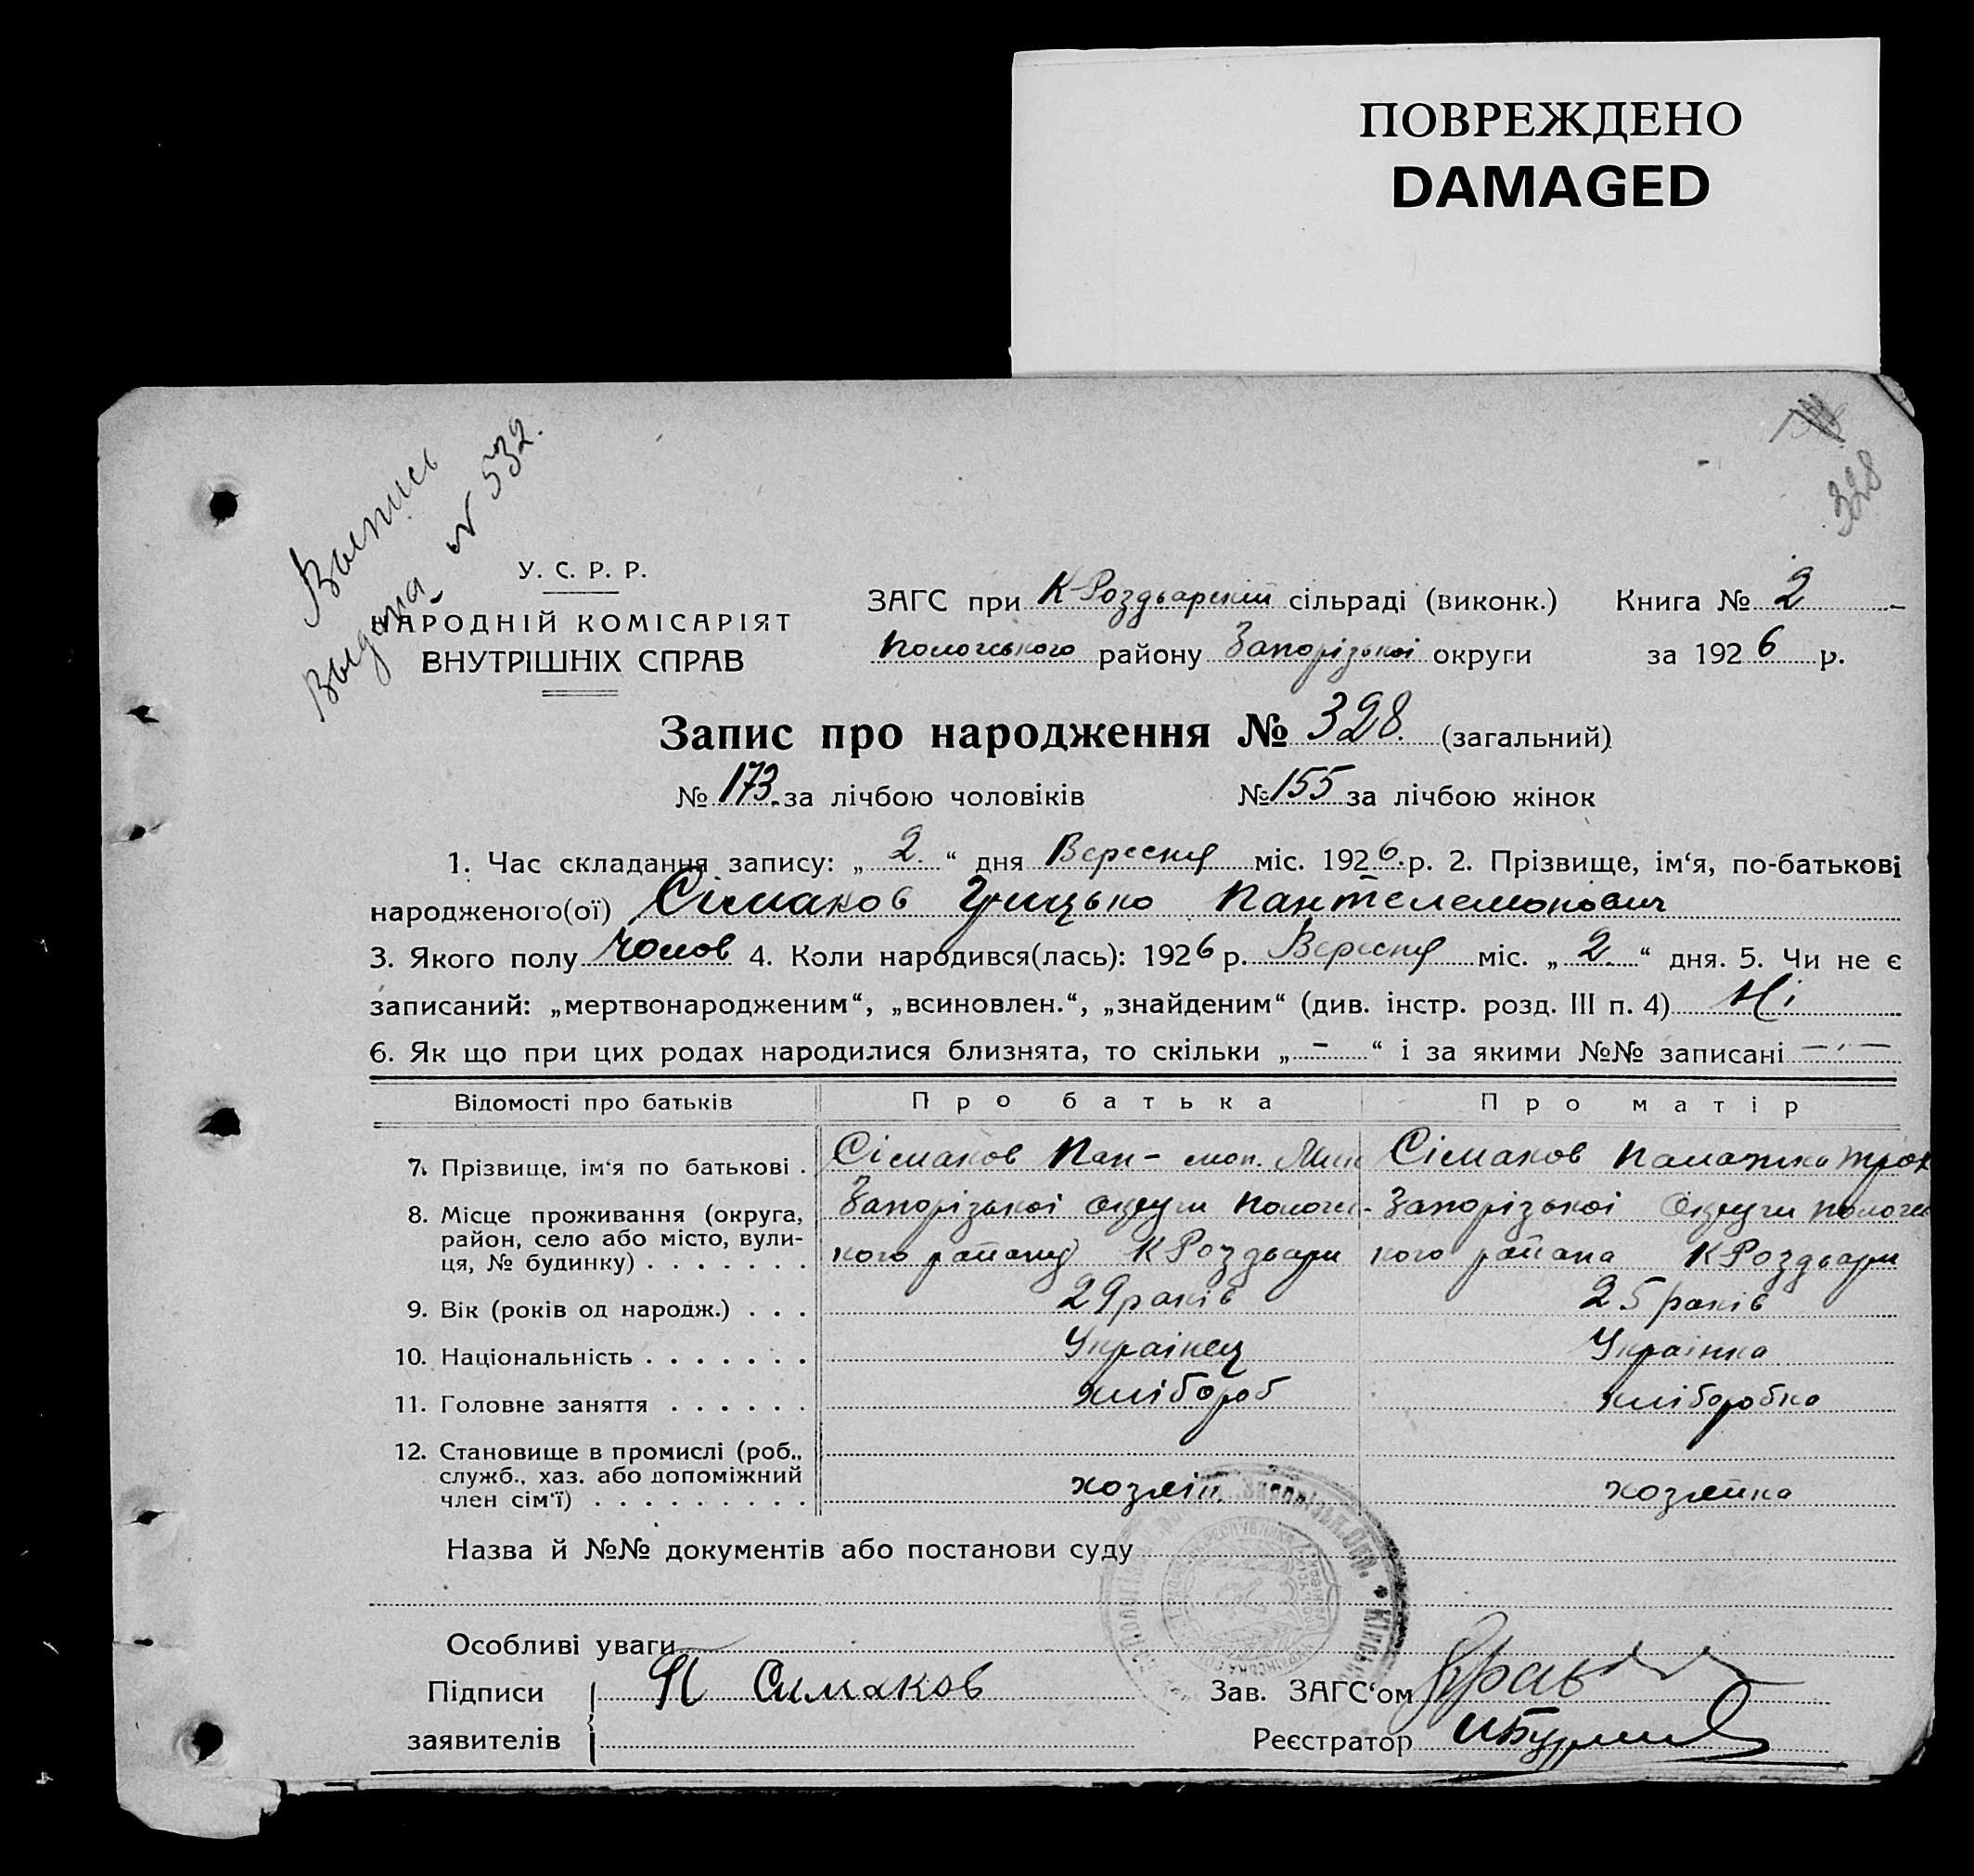 ПОВРЕЖДЕНО
DAMAGED
Выпись
выдана N 532.
328
У. С. Р. Р.
НАРОДНІЙ КОМІСАРІЯТ
ВНУТРІШНІХ СПРАВ
ЗАГС при К-Роздьарській сільраді (виконк.) Книга № 2
Пологського району Запорізької округи за 1926 р.
Запис про народження № 328. (загальний)
№ 173. за лічбою чоловіків № 155 за лічбою жінок
1. Час складання запису: „ 2. “ дня Вересня міс. 1926. р. 2. Прізвище, ім‘я, по-батькові
народженого(ої) Сімаков Грицько Пантелемонович
3. Якого полу Чолов 4. Коли народився(лась): 1926 р. Вересня міс. „ 2. “ дня. 5. Чи не є
записаний: „мертвонародженим“, „всиновлен.“, „знайденим“ (див. інстр. розд. III п. 4) Ні
6. Як що при цих родах народилися близнята, то скільки „ - “ і за якими №№ записані -
Відомості про батьків Про батька Про матір
7. Прізвище, ім‘я по батькові . Сімаков Пан- мон. Сімаков Палажка Трох
8. Місце проживання (округа, Запорізької округи Пологс- Запорізької округи Пологс
район, село або місто, вули-
ця, № будинку) . . . . . . . кого району К Роздьари кого района К Роздьари
9. Вік (років од народж.) . . . 29 раків 25 раків
10. Національність . . . . . . . Українец Українка
11. Головне заняття . . . . . . хлібороб хліборобка
12. Становище в промислі (роб.,
служб., хаз. або допоміжний
член сім‘ї) . . . . . . . . . хозяін хозяйка
Назва й №№ документів або постанови суду
Особливі уваги
Підписи П Симаков Зав. ЗАГС‘ом
заявителів Реєстратор